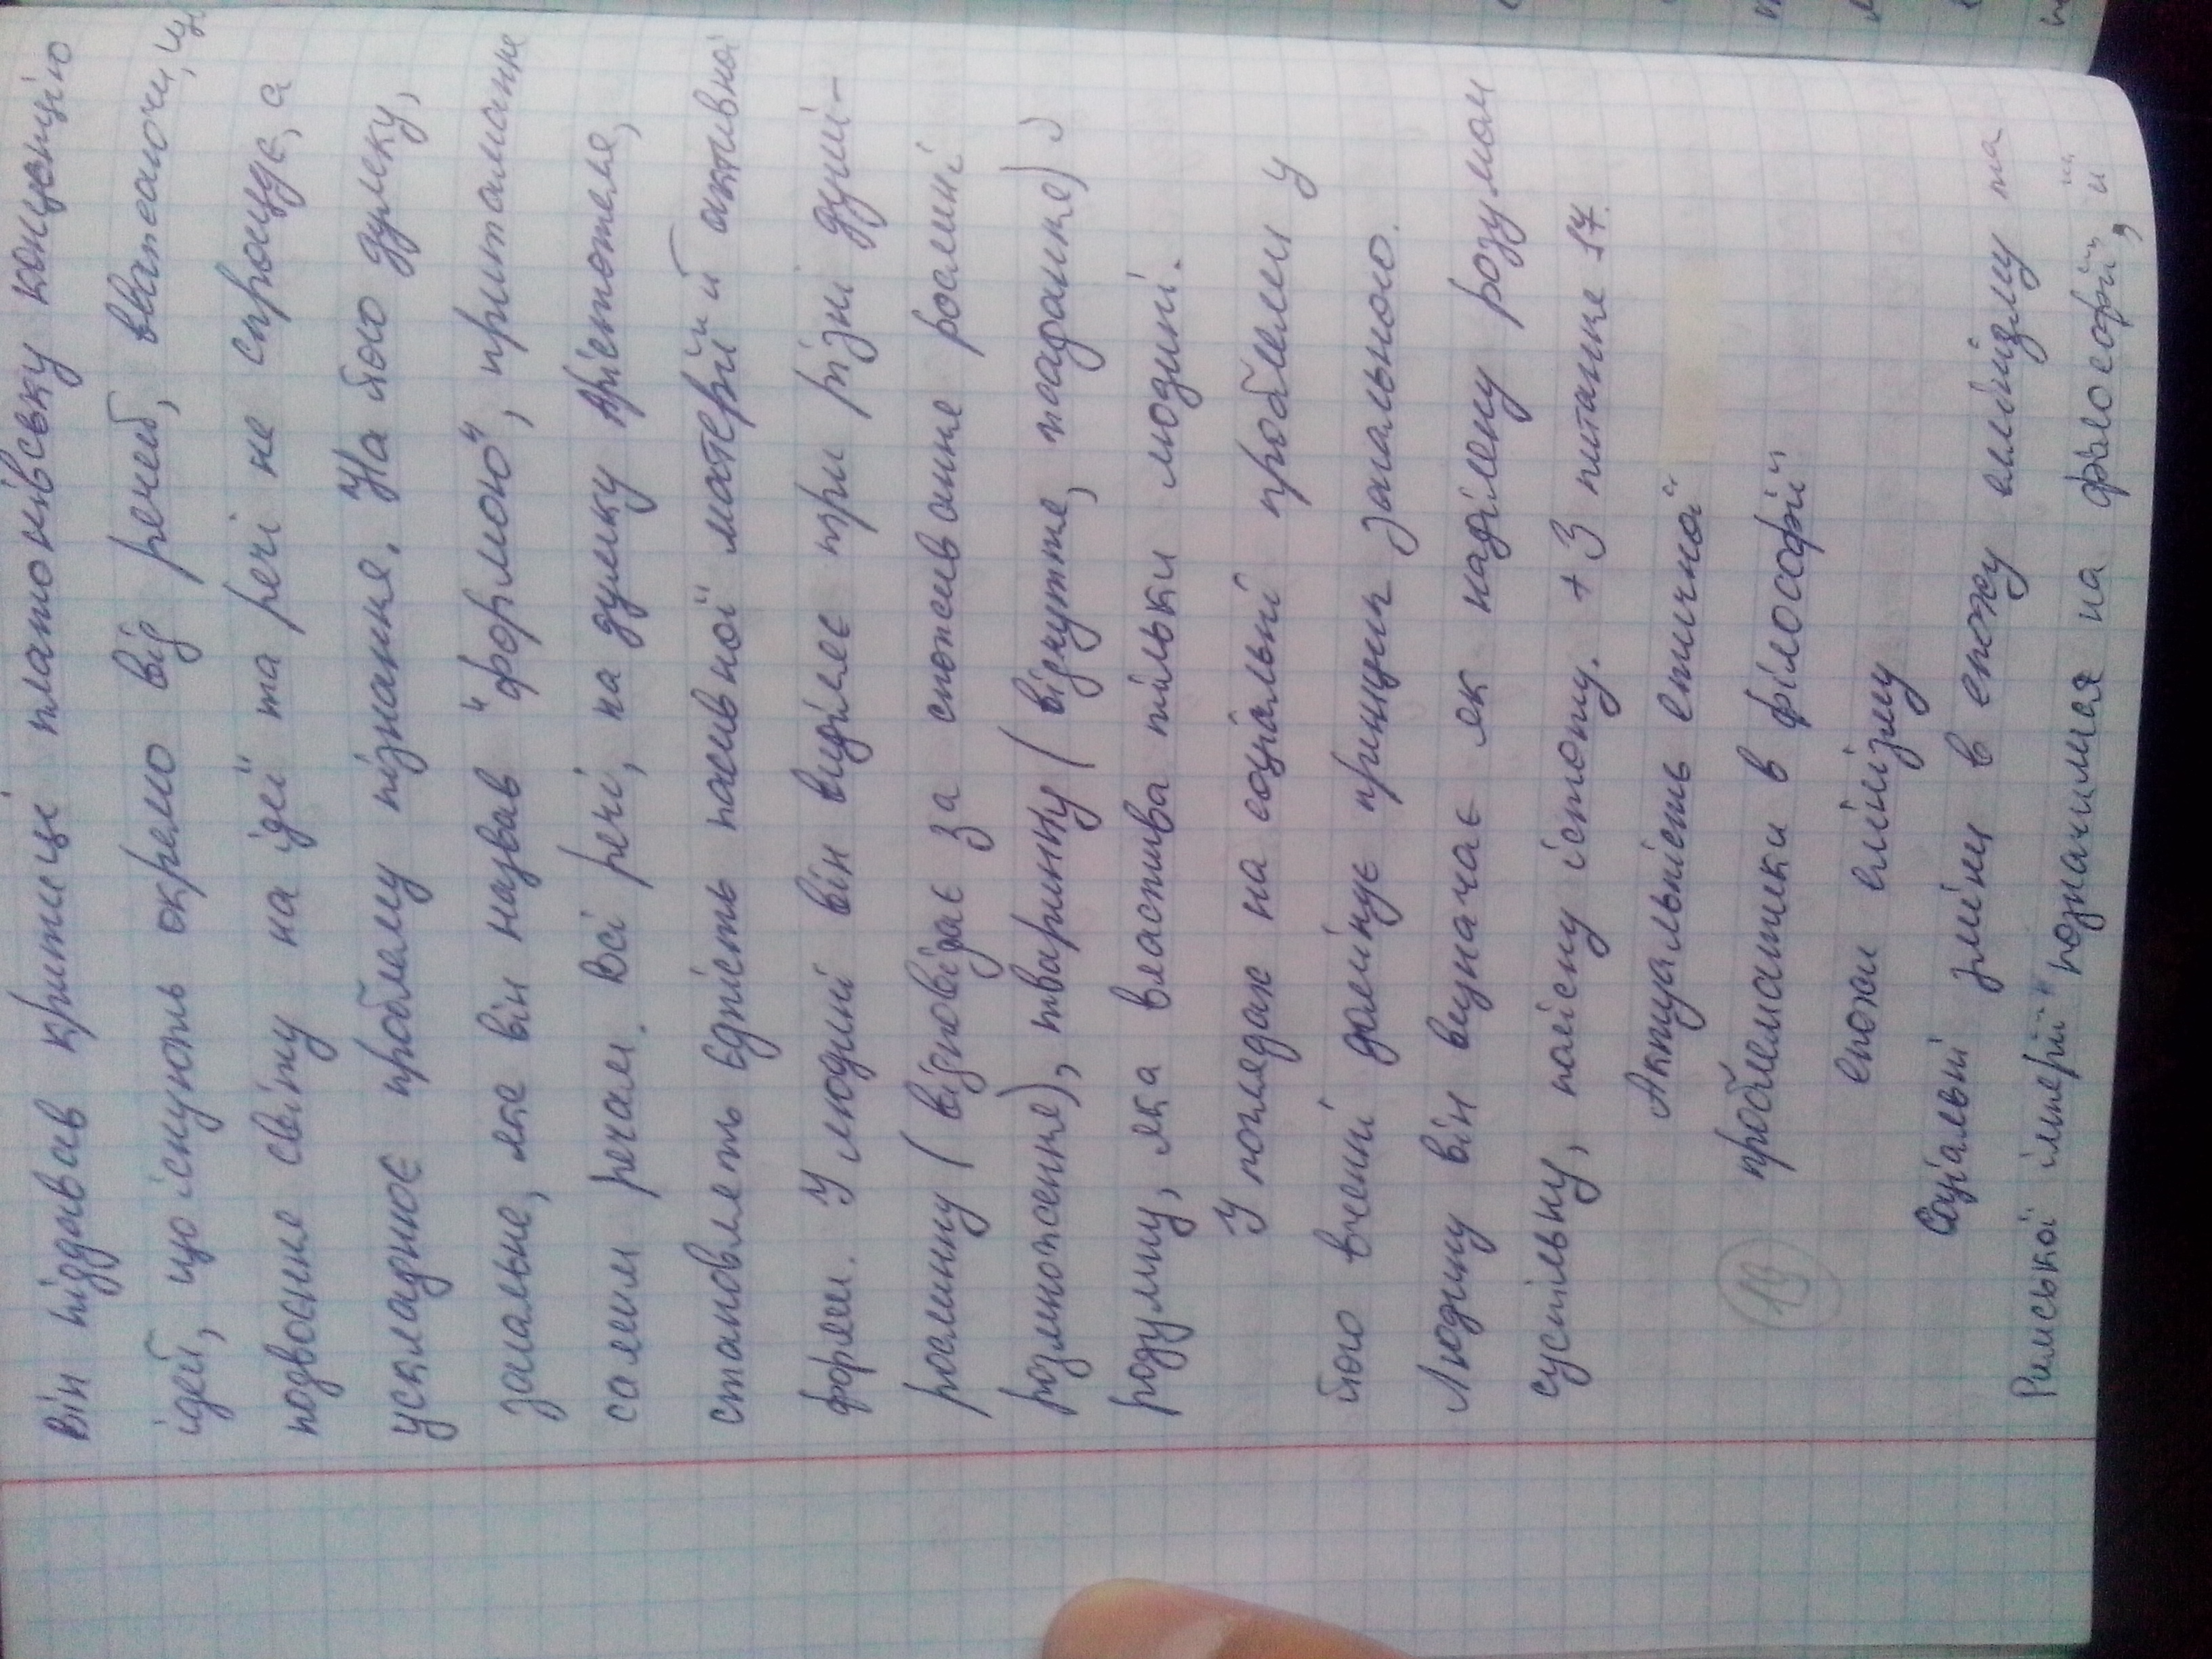 він піддавав критиці платонівську концепцію
ідей, що існують окремо від речей, вважаючи, що
подвоєння світу на ідеї та речі не спрощує, а
ускладнює проблему пізнання. На його думку,
загальне, яке він назвав "формою", притаманне
самим речам. Всі речі, на думку Арістотеля,
становлять єдність пасивної матерії й активної
форми. У людині він виділяє три різні душі-
рослинну (відповідає за споживання рослин і
розмноження), тваринну (відчуття, гадання) і
розумну, яка властива тільки людині.
У поглядах на соціальні проблеми у
його вченні домінує принцип загального.
Людину він визначає як наділену розумом
суспільну, полісну істоту. + 3 питання 17.
Актуальність етичної
19 проблематики в філософії
епохи елінізму
Соціальні зміни в епоху елінізму та
Римської імперії позначилися на філософії, її